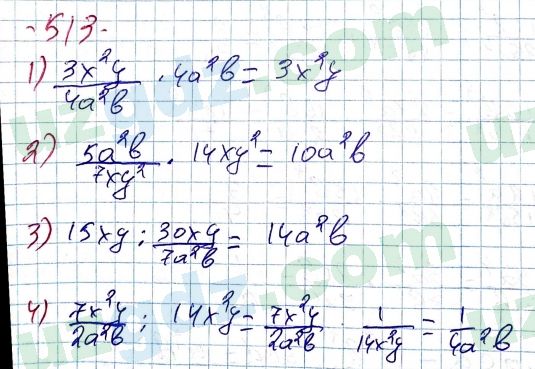 513.
1) 3x²y/4a²b · 4a²b = 3x²y
2) 5a²b/7xy² · 14xy² = 10a²b
3) 15xy : 30xy/7a²b = 14a²b
4) 7x²y/2a²b : 14x²y = 7x²y/2a²b · 1/14x²y = 1/4a²b
uzgdz.com